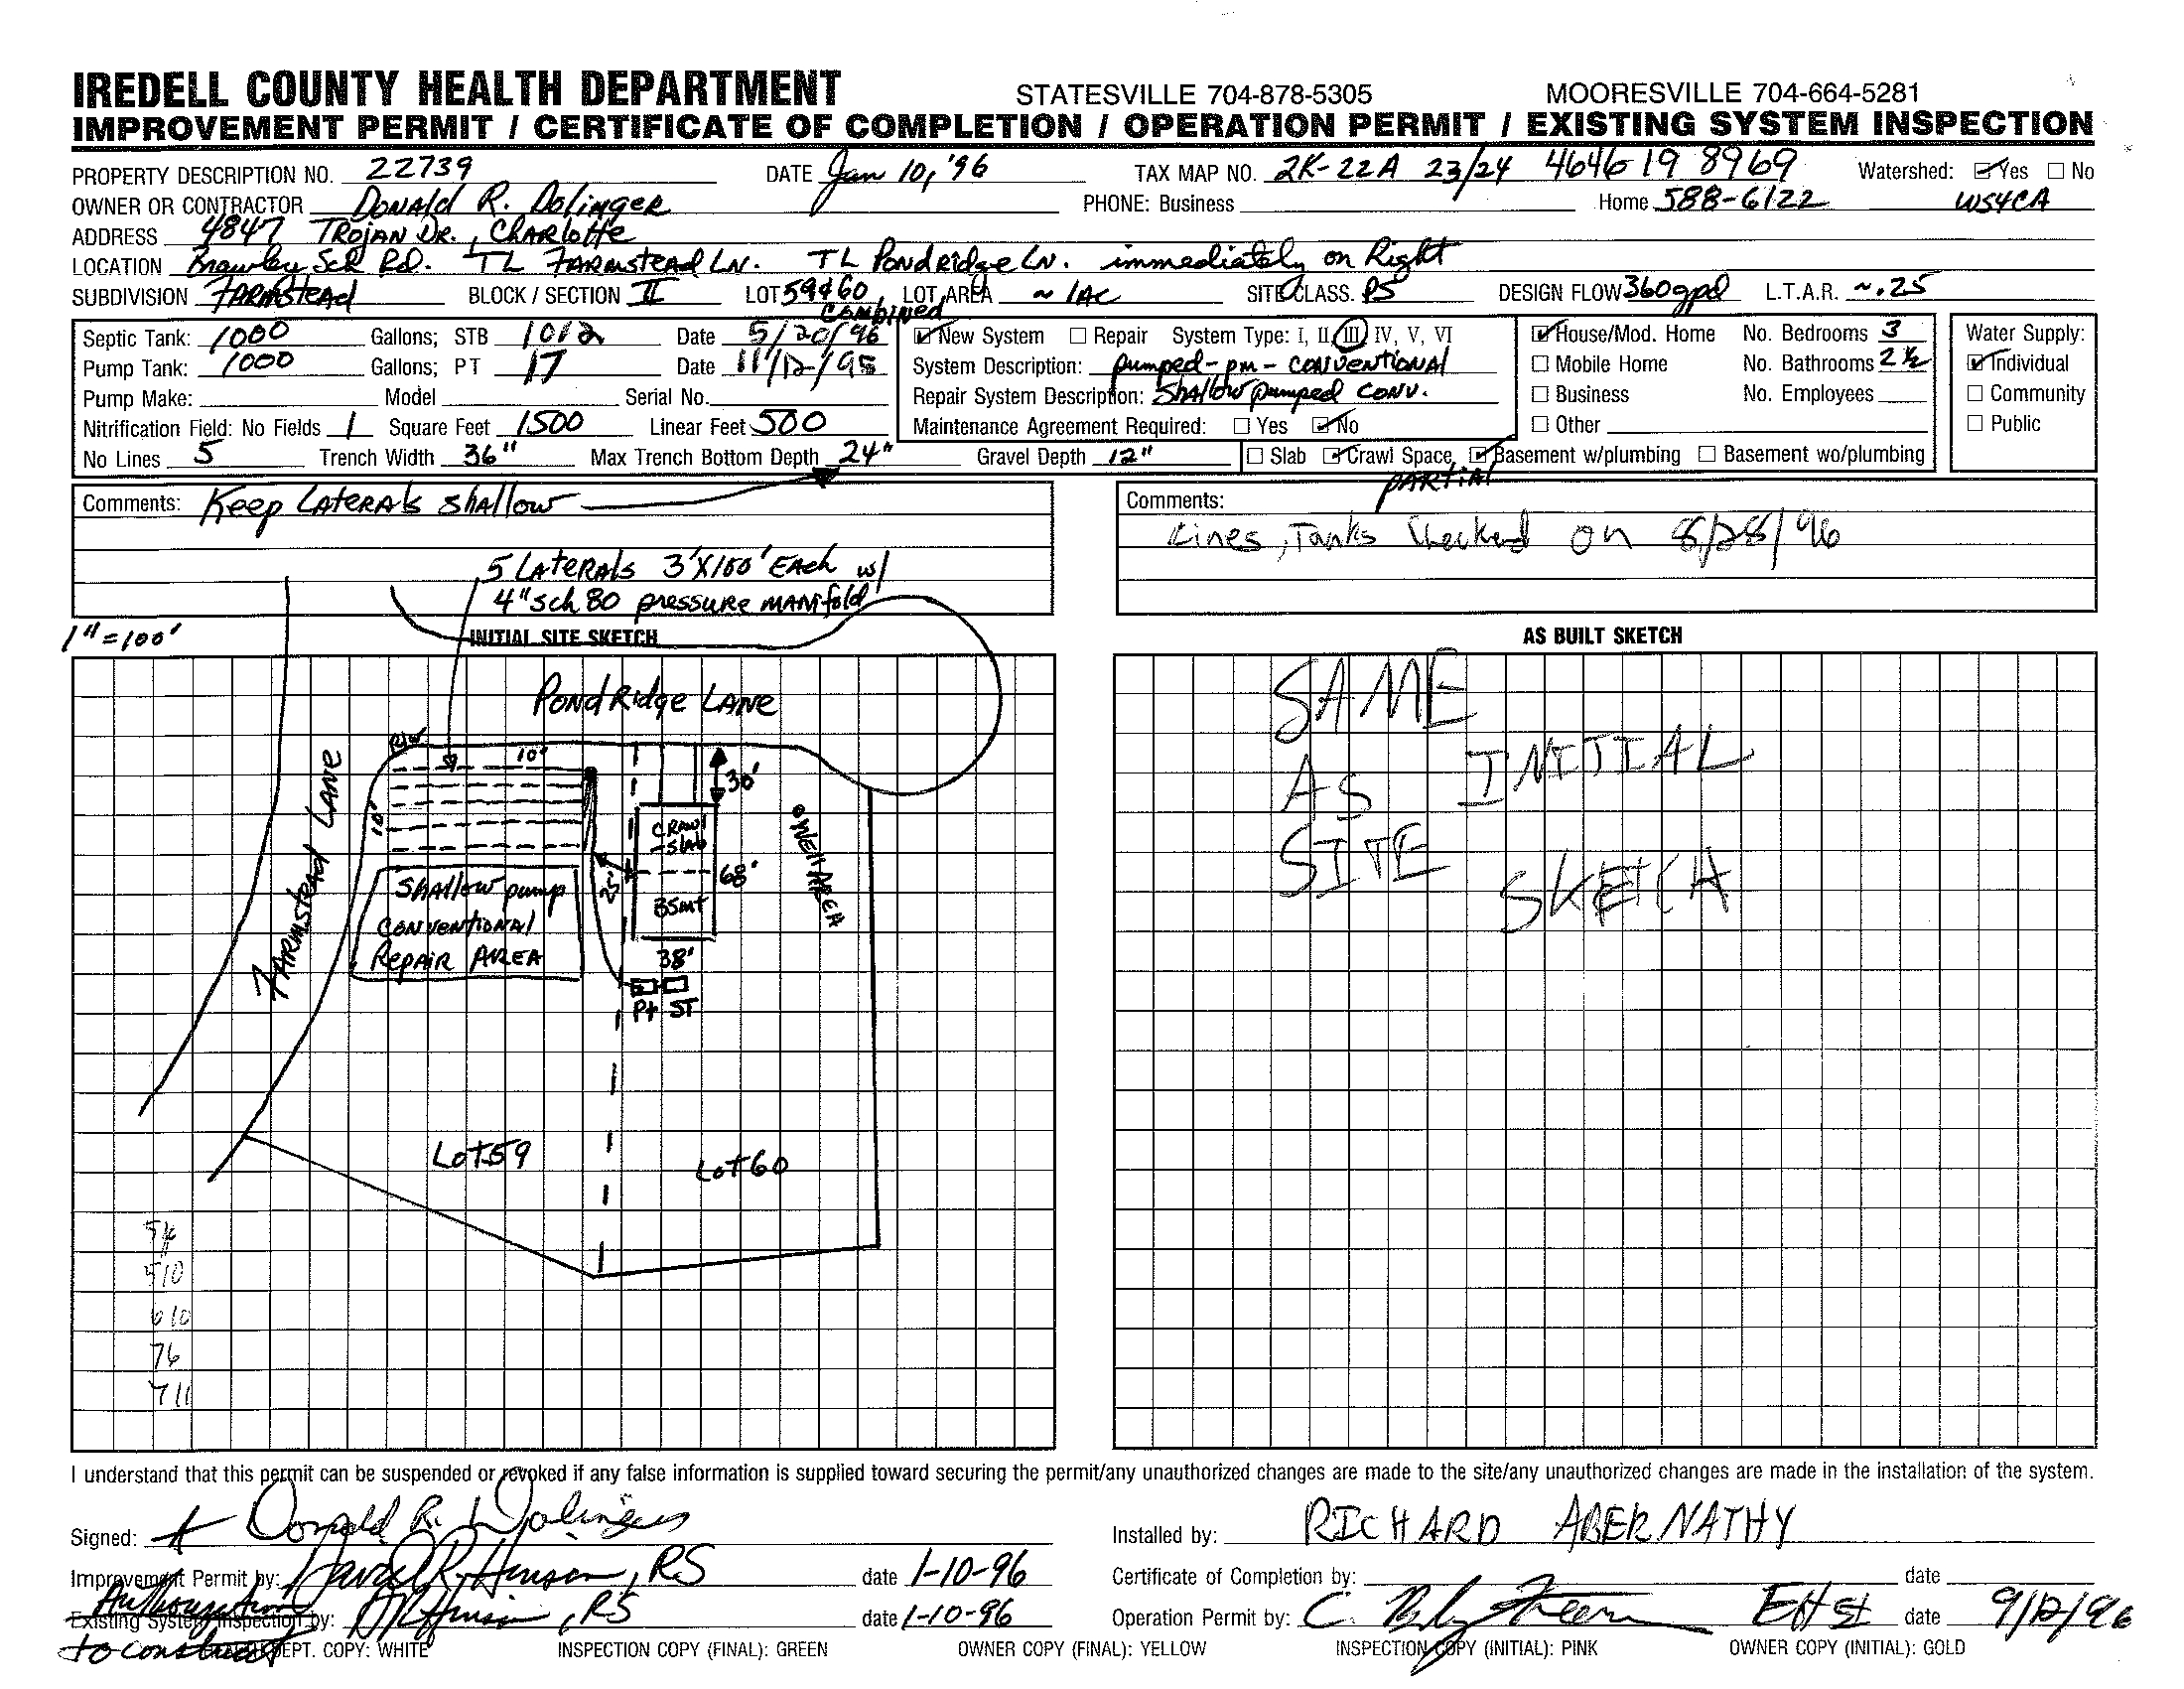 IREDELL COUNTY HEALTH DEPARTMENT STATESVILLE 704-878-5305 MOORESVILLE 704-664-5281
IMPROVEMENT PERMIT / CERTIFICATE OF COMPLETION / OPERATION PERMIT / EXISTING SYSTEM INSPECTION
PROPERTY DESCRIPTION NO. 22739 DATE Jan 10, '96 TAX MAP NO. 2K-22A 23/24 4646 19 8969 Watershed: ☑ Yes ☐ No
OWNER OR CONTRACTOR Donald R. Dolinger PHONE: Business Home 588-6122 WS4CA
ADDRESS 4847 Trojan Dr., Charlotte
LOCATION Brawley Sch Rd. TL Farmstead Ln. TL Pond Ridge Ln. immediately on Right
SUBDIVISION Farmstead BLOCK / SECTION II LOT 59&60 combined LOT AREA ~ 1AC SITE CLASS. PS DESIGN FLOW 360gpd L.T.A.R. ~.25
Septic Tank: 1000 Gallons; STB 1012 Date 5/20/96 ☑ New System ☐ Repair System Type: I, II, III, IV, V, VI ☑ House/Mod. Home No. Bedrooms 3 Water Supply:
Pump Tank: 1000 Gallons; PT 17 Date 11/12/95 System Description: pumped-pm-conventional ☐ Mobile Home No. Bathrooms 2 ½ ☑ Individual
Pump Make: Model Serial No. Repair System Description: Shallow pumped conv. ☐ Business No. Employees ☐ Community
Nitrification Field: No Fields 1 Square Feet 1500 Linear Feet 500 Maintenance Agreement Required: ☐ Yes ☑ No ☐ Other ☐ Public
No Lines 5 Trench Width 36" Max Trench Bottom Depth 24" Gravel Depth 12" ☐ Slab ☑ Crawl Space ☑ Basement w/plumbing ☐ Basement wo/plumbing
partial
Comments: Keep Laterals shallow
5 Laterals 3'x100' Each w/
4" sch 80 pressure manifold
Comments:
Lines, Tanks Checked on 8/28/96
1" = 100'
INITIAL SITE SKETCH
AS BUILT SKETCH
Pond Ridge Lane
R/W
10'
30'
Farmstead Lane
10'
Crawl
-slab
68'
25'
Bsmt
38'
Well Area
Shallow pump
conventional
Repair Area
Pt ST
Lot 59
Lot 60
510
610
76
711
SAME
AS INITIAL
SITE
SKETCH
I understand that this permit can be suspended or revoked if any false information is supplied toward securing the permit/any unauthorized changes are made to the site/any unauthorized changes are made in the installation of the system.
Signed: Donald R. Dolinger Installed by: RICHARD ABERNATHY
Improvement Permit by: David R. Hinson, RS date 1-10-96 Certificate of Completion by: date
Authorization
Existing System Inspection by: DRHinson, RS date 1-10-96 Operation Permit by: C. Freeman date 9/12/96
to construct DEPT. COPY: WHITE INSPECTION COPY (FINAL): GREEN OWNER COPY (FINAL): YELLOW INSPECTION COPY (INITIAL): PINK OWNER COPY (INITIAL): GOLD